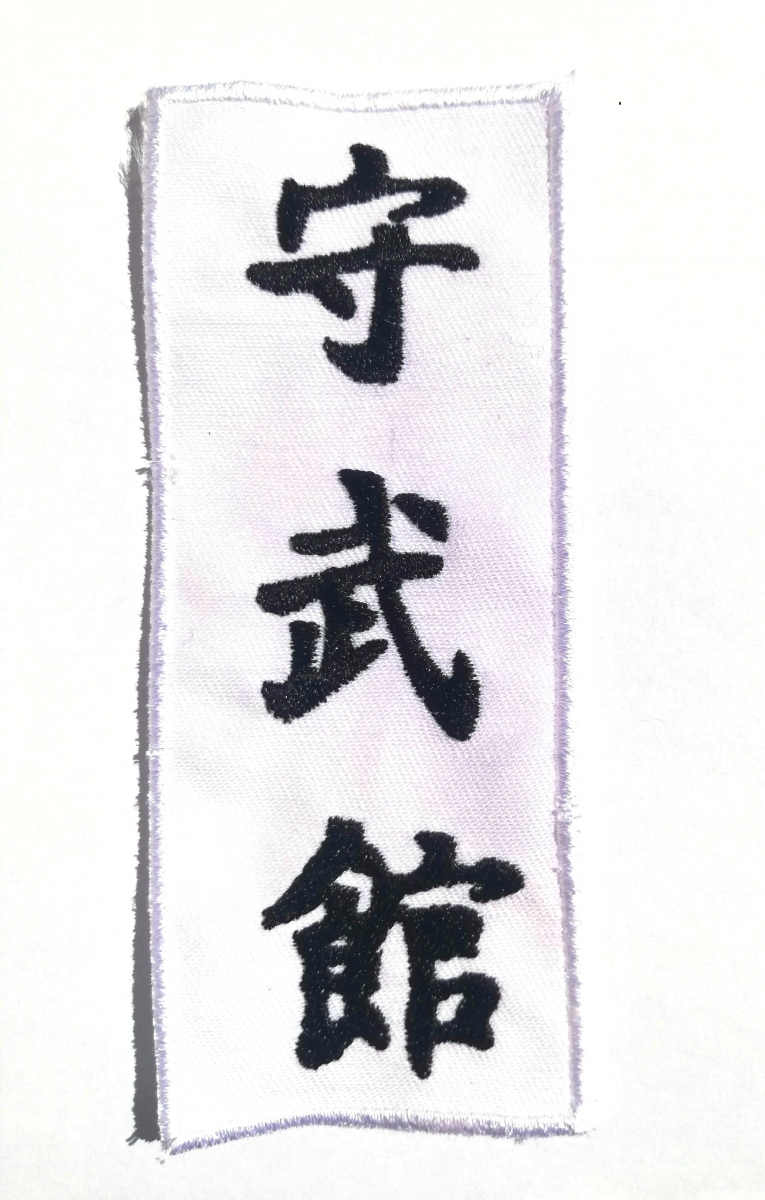 守武館